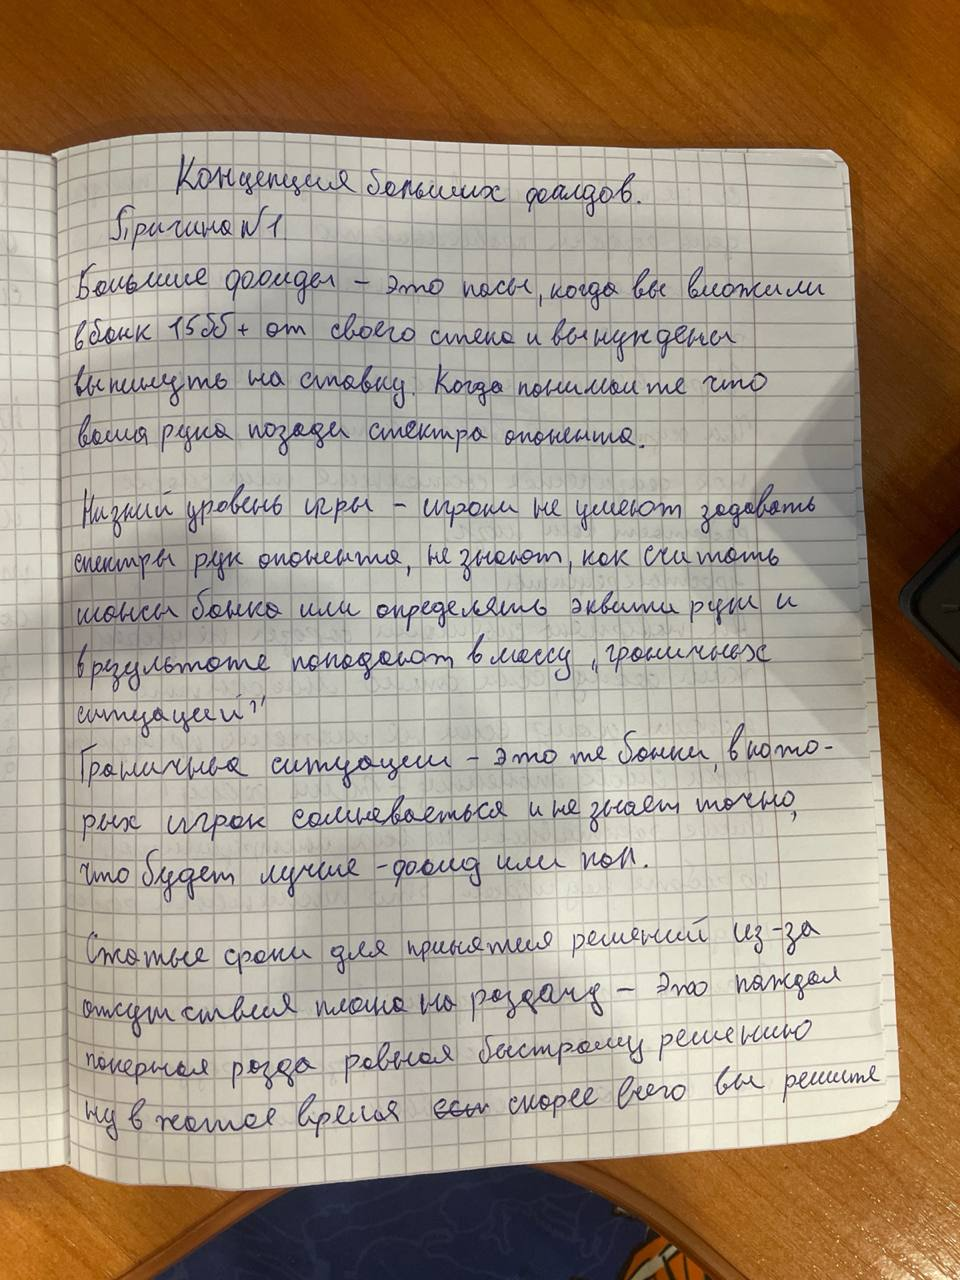 Концепция больших фолдов.
Причина №1
Большие фолды – это пасы, когда вы вложили
в банк 15бб+ от своего стека и вынуждены
выкинуть на ставку. Когда понимаите что
ваша рука позади спектра опонента.
Низкий уровень игры – игроки не умеют задавать
спектры рук опонента, не знают, как считать
шансы банка или определять эквити руки и
в результате попадают в массу „граничных
ситуаций"
Граничные ситуации – это те банки, в кото-
рых игрок сомневаеться и не знает точно,
что будет лучше - фолд или кол.
Сжатые сроки для принятия решений из-за
отсутствия плана на раздачу – это каждая
покерная разда равная быстрому решению
ну в жатое время скорее всего вы решите